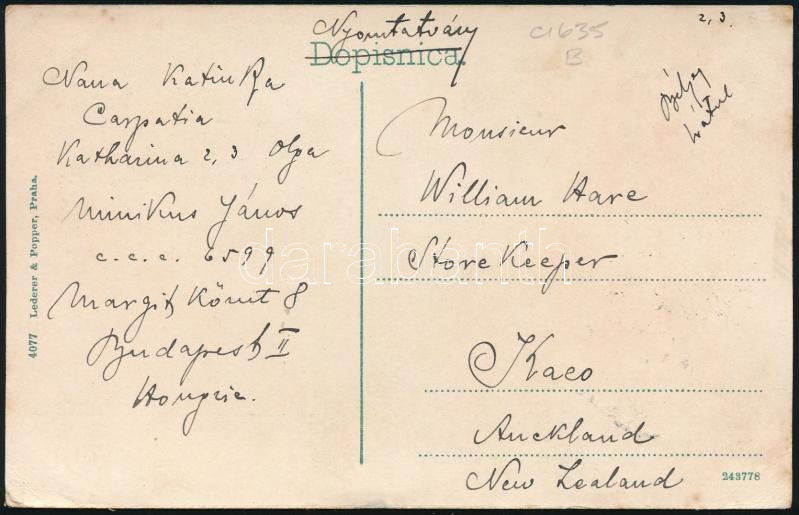 Nyomtatvány
Dopisnica.
C1635
B
2,3.
Bélyeg
hátul
Nana Katinka
Carpatia
Katharina 2,3 Olga
Minikus János
c.c.c. 6599
Margit Körút 8
Budapest II
Hongrie.
Monsieur
William Hare
Store Keeper
Kaeo
Auckland
New Zealand
4077 Lederer & Popper, Praha.
243778
darabanth